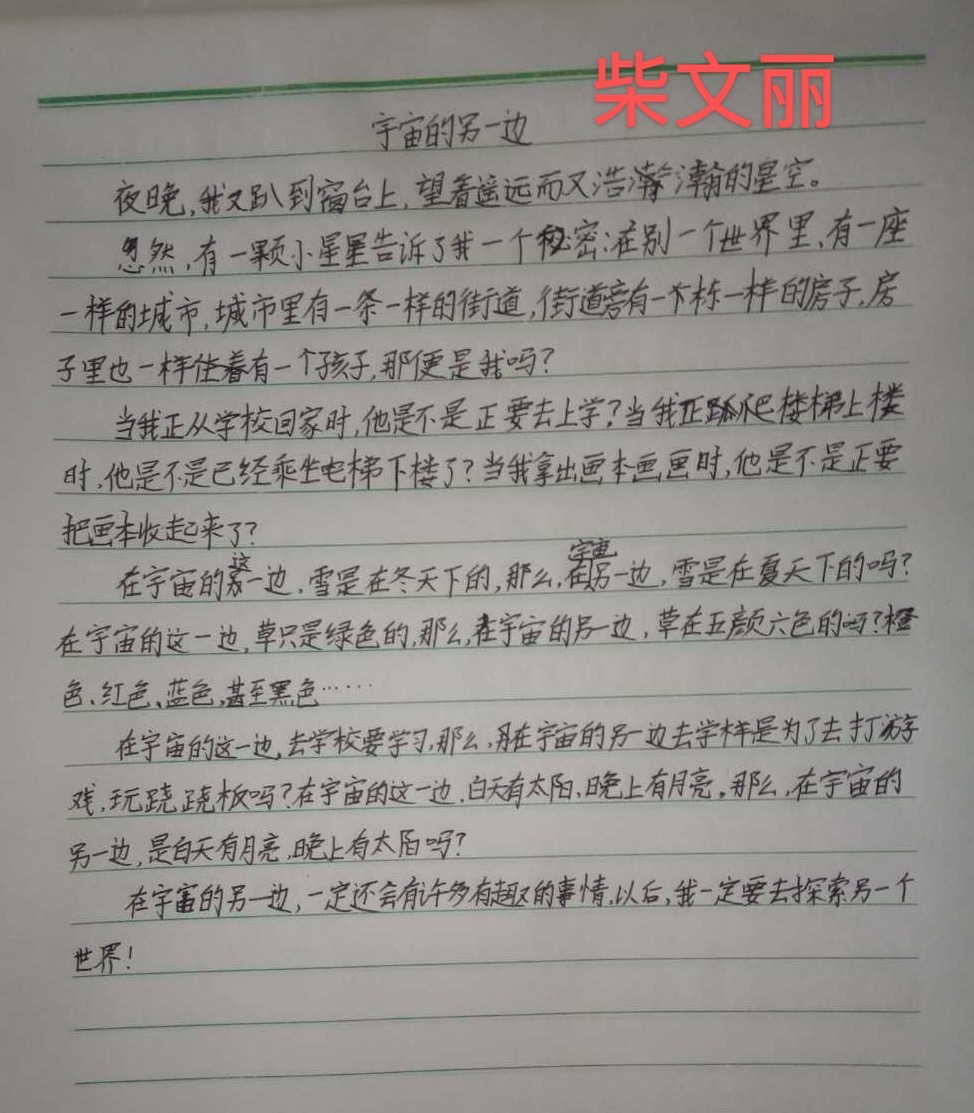 柴文丽
宇宙的另一边
夜晚,我又趴到窗台上,望着遥远而又浩瀚的星空。
忽然,有一颗小星星告诉了我一个秘密:在别一个世界里,有一座
一样的城市,城市里有一条一样的街道,街道旁有一栋一样的房子,房
子里也一样住着有一个孩子,那便是我吗?
当我正从学校回家时,他是不是正要去上学?当我正爬楼梯上楼
时,他是不是已经乘坐电梯下楼了?当我拿出画本画画时,他是不是正要
把画本收起来了?
在宇宙的这一边,雪是在冬天下的,那么,在宇宙另一边,雪是在夏天下的吗?
在宇宙的这一边,草只是绿色的,那么,在宇宙的另一边,草在五颜六色的吗?橙
色、红色、蓝色,甚至黑色……
在宇宙的这一边,去学校要学习,那么,在宇宙的另一边去学样是为了去打游
戏,玩跷跷板吗?在宇宙的这一边,白天有太阳,晚上有月亮,那么,在宇宙的
另一边,是白天有月亮,晚上有太陌吗?
在宇宙的另一边,一定还会有许多有趣的事情,以后,我一定要去探索另一个
世界!